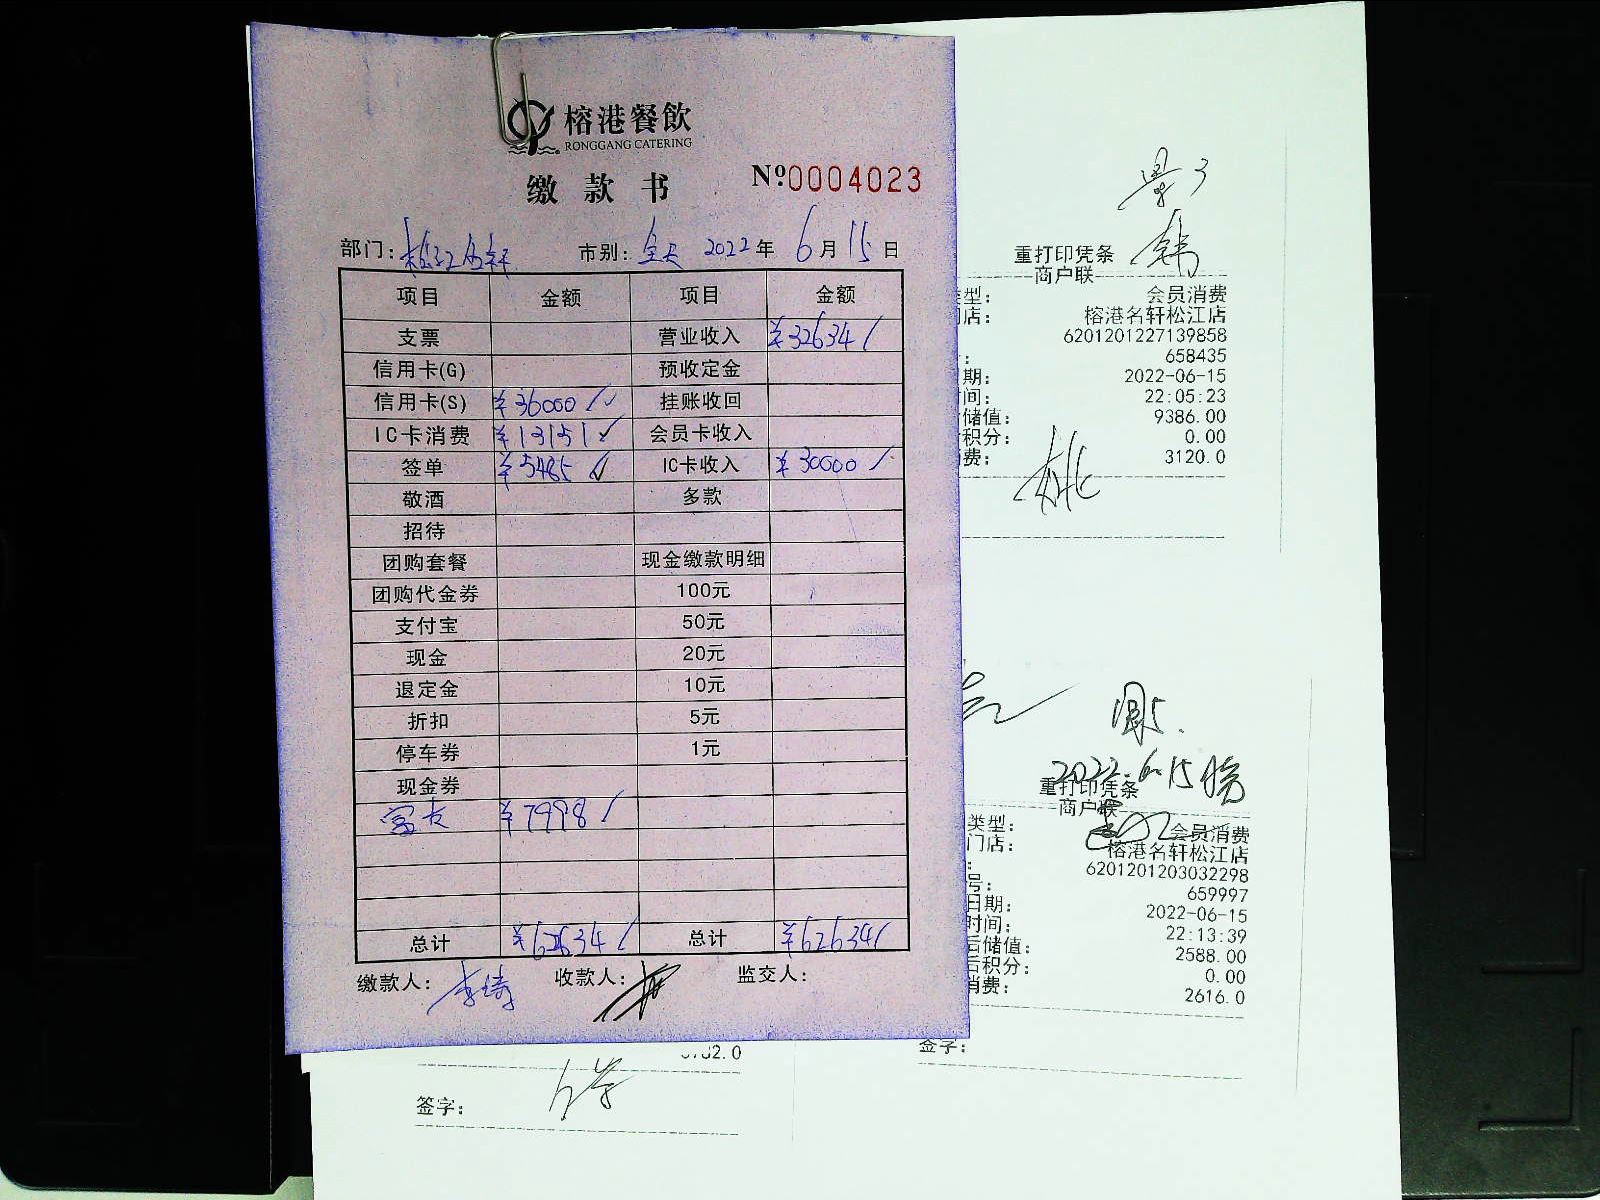 榕港餐飲
RONGGANG CATERING
缴款书
№0004023
部门：松江名轩 市别：全天 2022年6月15日
项目 金额 项目 金额
支票 营业收入 ¥32634
信用卡(G) 预收定金
信用卡(S) ¥36000 挂账收回
IC卡消费 ¥13151 会员卡收入
签单 ¥5485 IC卡收入 ¥30000
敬酒 多款
招待
团购套餐 现金缴款明细
团购代金券 100元
支付宝 50元
现金 20元
退定金 10元
折扣 5元
停车券 1元
现金券
¥7998
总计 ¥62634 总计 ¥62634
缴款人： 收款人： 监交人：
重打印凭条
商户联
类型： 会员消费
店： 榕港名轩松江店
6201201227139858
： 658435
期： 2022-06-15
间： 22:05:23
储值： 9386.00
积分： 0.00
费： 3120.0
2022.6.15
重打印凭条
商户联
类型： 会员消费
门店： 榕港名轩松江店
： 6201201203032298
号： 659997
日期： 2022-06-15
时间： 22:13:39
后储值： 2588.00
后积分： 0.00
消费： 2616.0
签字：
签字：